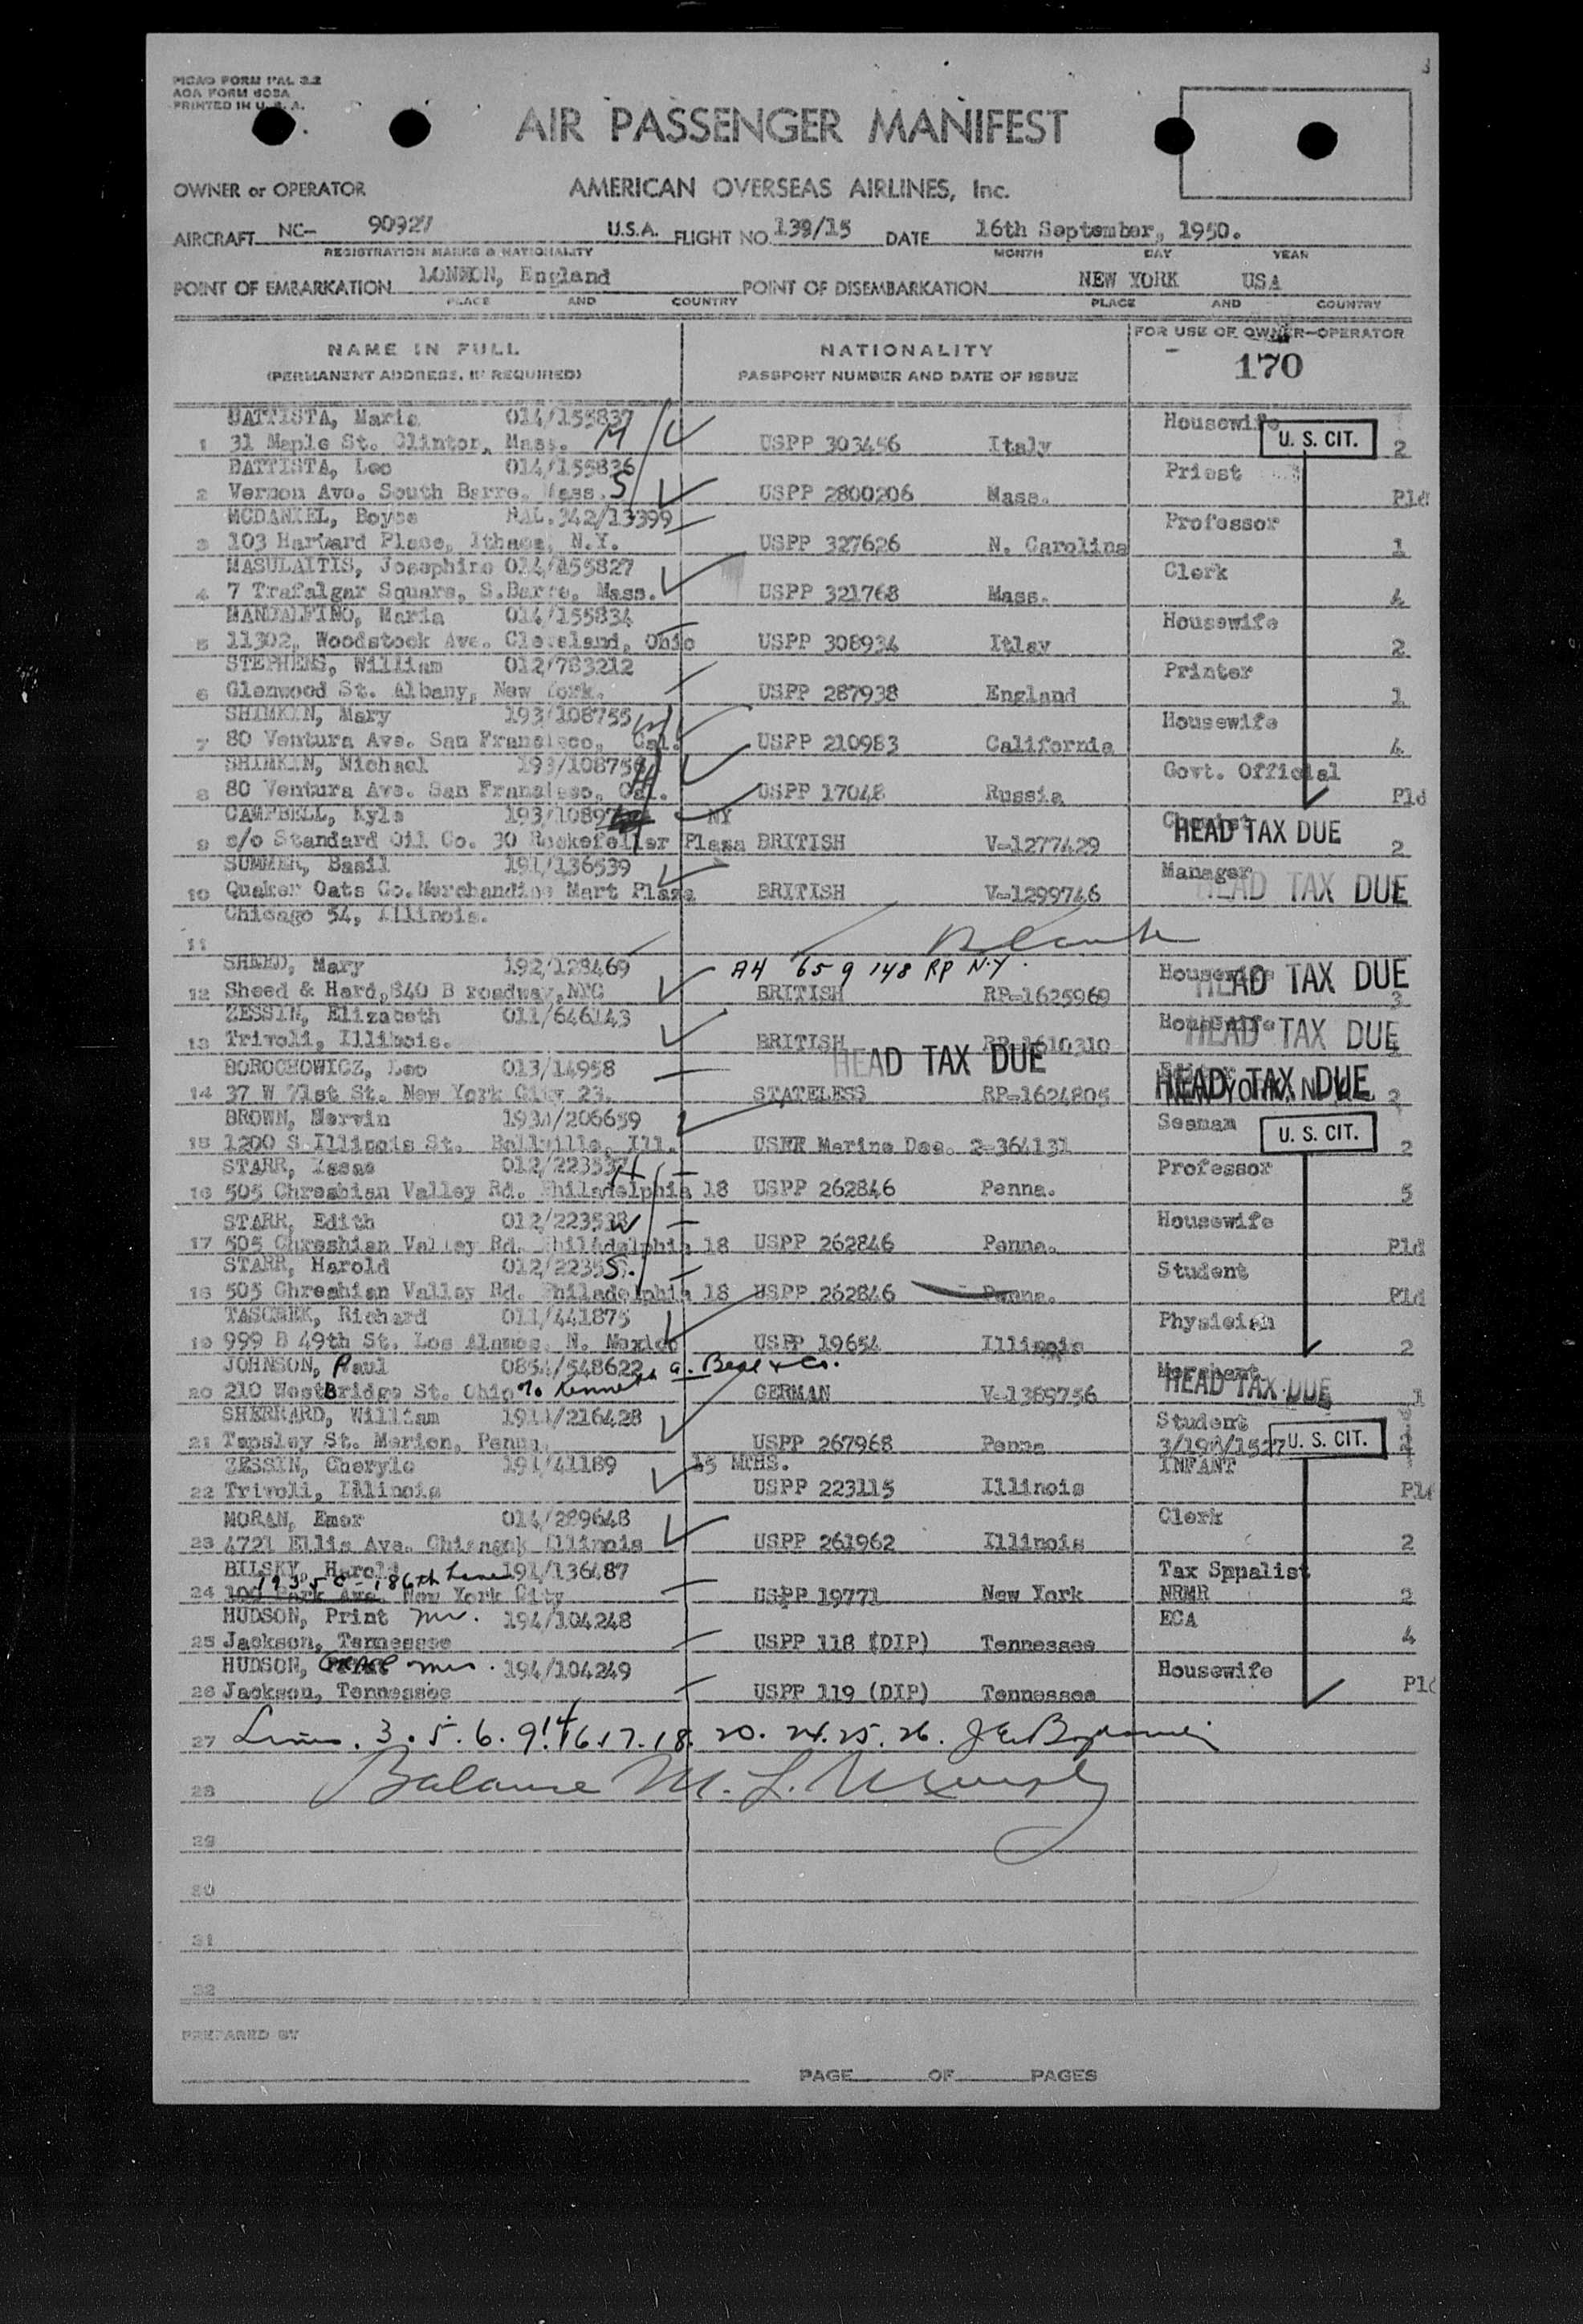 PICAO FORM PAL 3.2
AOA FORM 603A
PRINTED IN U. S. A.
AIR PASSENGER MANIFEST
OWNER or OPERATOR AMERICAN OVERSEAS AIRLINES, Inc.
AIRCRAFT NC- 90927 U.S.A. FLIGHT NO. 139/15 DATE 16th September, 1950.
REGISTRATION MARKS & NATIONALITY MONTH DAY YEAR
POINT OF EMBARKATION LONDON, England POINT OF DISEMBARKATION NEW YORK USA
PLACE AND COUNTRY PLACE AND COUNTRY
NAME IN FULL NATIONALITY FOR USE OF OWNER-OPERATOR
(PERMANENT ADDRESS, IF REQUIRED) PASSPORT NUMBER AND DATE OF ISSUE 170
BATTISTA, Maria 014/155837 Housewife
1 31 Maple St. Clinton, Mass. M USPP 303456 Italy U. S. CIT. 2
BATTISTA, Leo 014/155836 Priest
2 Vernon Ave. South Barre, Mass. S USPP 2800206 Mass. Pld
MCDANIEL, Boyce MAL.342/13399 Professor
3 103 Harvard Place, Ithaca, N.Y. USPP 327626 N. Carolina 1
MASULAITIS, Josephine 014/155827 Clerk
4 7 Trafalgar Square, S.Barre, Mass. USPP 321768 Mass. 4
MANDALFINO, Maria 014/155834 Housewife
5 11302, Woodstock Ave. Cleveland, Ohio USPP 308934 Itlay 2
STEPHENS, William 012/783212 Printer
6 Glenwood St. Albany, New York. USPP 287938 England 1
SHIMKIN, Mary 193/108755 Housewife
7 80 Ventura Ave. San Francisco, Cal. USPP 210983 California 4
SHIMKIN, Michael 193/10875 H Govt. Official
8 80 Ventura Ave. San Francisco, Cal. USPP 17048 Russia Pld
CAMPBELL, Kyle 193/1089 NY Chemist
9 c/o Standard Oil Co. 30 Rockefeller Plaza BRITISH V-1277429 HEAD TAX DUE 2
SUMMER, Basil 191/136539 Manager
10 Quaker Oats Co. Merchandise Mart Plaza BRITISH V-1299746 HEAD TAX DUE
Chicago 54, Illinois.
11
SHEED, Mary 192/128469 A4 659 148 RP N.Y. Housewife HEAD TAX DUE
12 Sheed & Hard,840 B roadway,NYC BRITISH RP-1625969 3
ZESSIN, Elizabeth 011/646143 Housewife HEAD TAX DUE
13 Trivoli, Illinois. BRITISH RP-1610310
BOROCHOWICZ, Leo 013/14958 HEAD TAX DUE
14 37 W 71st St. New York City 23. STATELESS RP-1624805 HEAD TAX DUE 2
BROWN, Mervin 193A/206659 Seaman
15 1200 S Illinois St. Bellville, Ill. USRR Marine Doc. Z-364131 U. S. CIT. 2
STARR, Isaac 012/22353 H Professor
16 505 Chreshian Valley Rd. Philadelphia 18 USPP 262846 Penna. 5
STARR, Edith 012/22353 W Housewife
17 505 Chreshian Valley Rd. Philadelphia 18 USPP 262846 Penna. Pld
STARR, Harold 012/2235 S. Student
18 505 Chreshian Valley Rd. Philadelphia 18 USPP 262846 Penna. Pld
TASCHEK, Richard 011/441875 Physician
19 999 B 49th St. Los Alamos, N. Mexico USPP 19654 Illinois 2
JOHNSON, Paul 085A/548622 Merchant
20 210 West Bridge St. Ohio % Kenneth a. Beal & Co. GERMAN V-1389756 HEAD TAX DUE 1
SHERRARD, William 191A/216428 Student
21 Tapsley St. Merion, Penna. USPP 267968 Penna 3/19A/1527 U. S. CIT.
ZESSIN, Cheryle 191/41189 15 MTHS. INFANT
22 Trivoli, Illinois USPP 223115 Illinois Pld
MORAN, Emer 014/289648 Clerk
23 4721 Ellis Ave. Chicago, Illinois USPP 261962 Illinois 2
BILSKY, Harold 191/136487 Tax Sppalist
24 100 Park Ave. New York City USPP 19771 New York NRMR 2
HUDSON, Print mr. 194/104248 ECA
25 Jackson, Tennessee USPP 118 (DIP) Tennessee 4
HUDSON, GRACE mrs. 194/104249 Housewife
26 Jackson, Tennessee USPP 119 (DIP) Tennessee Pld
27 Lines. 3. 5. 6. 9. 14 16.17.18. 20. 24.25. 26.
28 Balance M. L.
29
30
31
32
PREPARED BY
PAGE OF PAGES